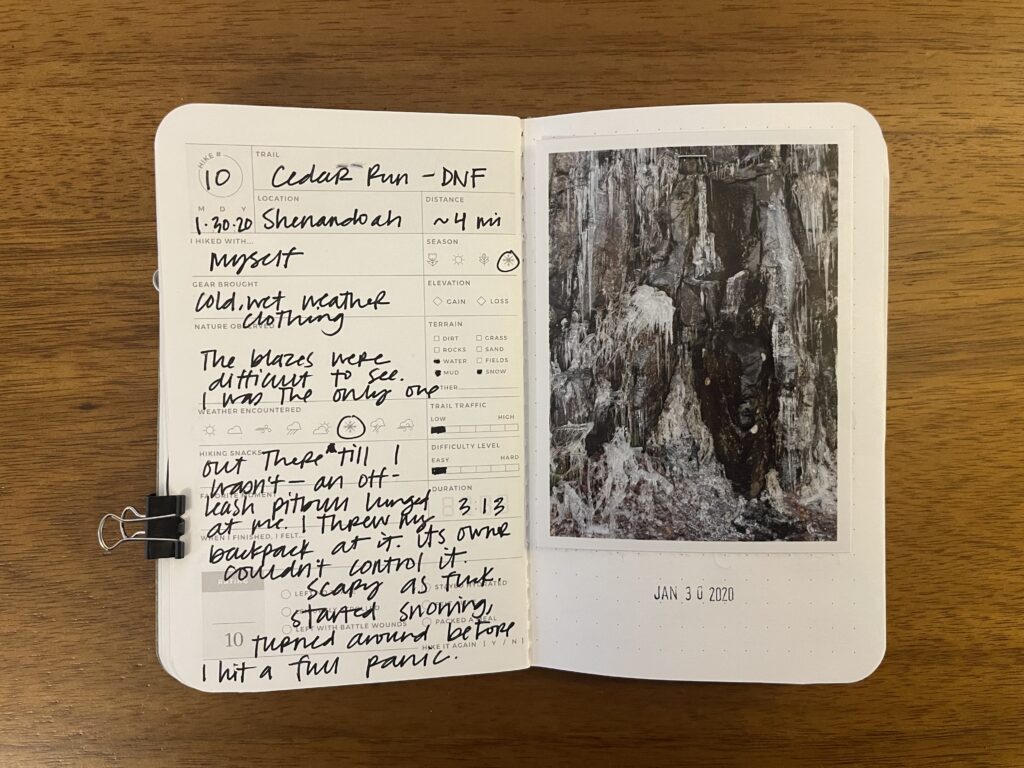 HIKE #
10
TRAIL
Cedar Run - DNF
M D Y
1.30.20
LOCATION
Shenandoah
DISTANCE
~4 mi
I HIKED WITH...
myself
SEASON
GEAR BROUGHT
cold, wet weather
clothing
ELEVATION
GAIN LOSS
NATURE OBSERVED
The blazes were
difficult to see.
I was the only one
TERRAIN
DIRT GRASS
ROCKS SAND
WATER FIELDS
MUD SNOW
OTHER...
WEATHER ENCOUNTERED
TRAIL TRAFFIC
LOW HIGH
HIKING SNACKS
out there till I
wasn't - an off-
leash pitbull lunged
at me. I threw my
backpack at it. its owner
couldn't control it.
scary as fuck.
started snowing,
turned around before
I hit a full panic.
DIFFICULTY LEVEL
EASY HARD
FAVORITE MOMENT
DURATION
3 13
WHEN I FINISHED, I FELT...
STAYED HYDRATED
LEFT WITH BATTLE WOUNDS
PACKED A MEAL
10
HIKE IT AGAIN [ Y / N ]
JAN 30 2020